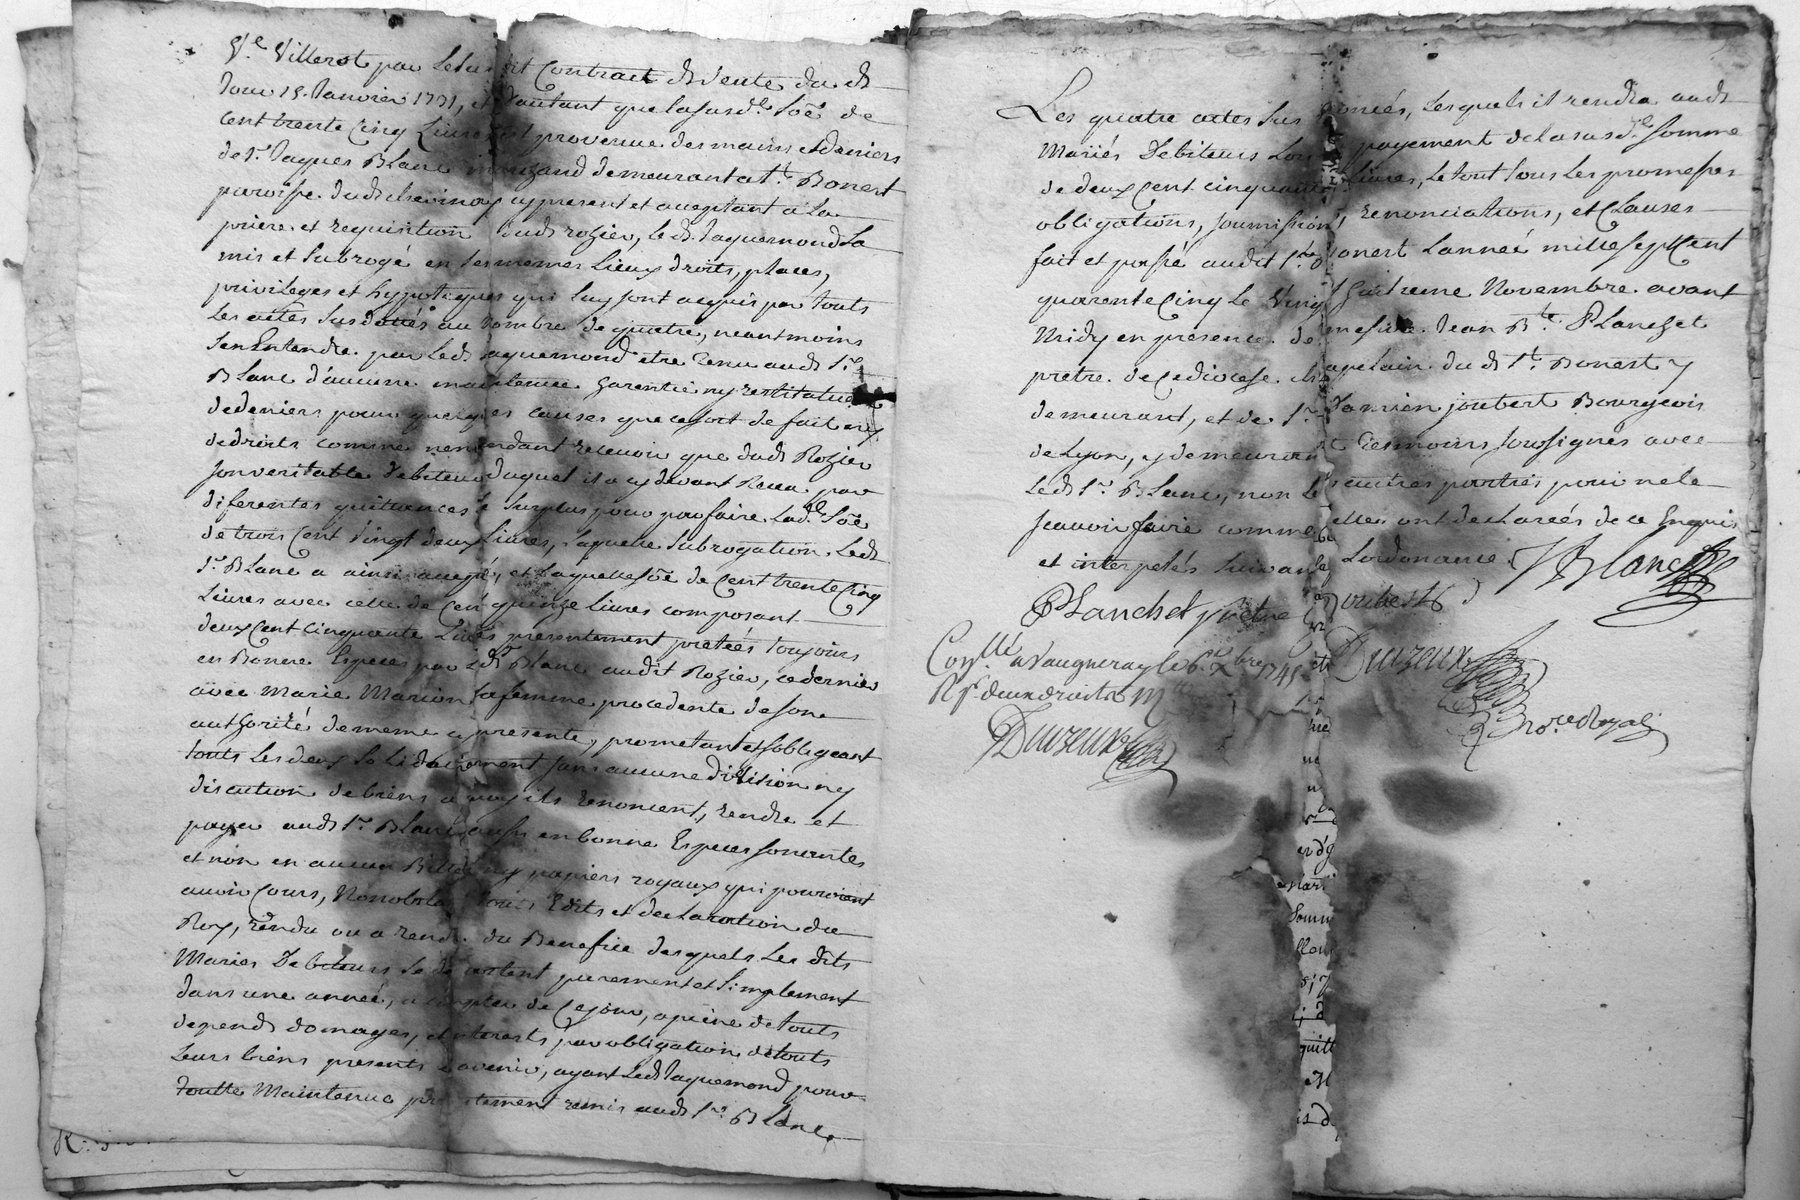 Vᵉ Villerot par le susdit Contract de Vente du dt
Jour 15 Janvier 1731, et d'autant que la susde. Soē de
cent trente Cinq Livres est provenue des mains et deniers
de Sr. Jaques Blanc demeurant a St. Bonest
paroisse dudt. cy present et acceptant a la
priere et requisition dudt rozier, le dt. Jaquemond La
mis et Subrogé en ses memes Lieux droits, places,
privileges et hypotiques qui luy sont acquis par touts
Les actes Susdattés au nombre de quatre, neantmoins
Sen Entendre par Ledt. Jaquemond etre tenu audt Sr.
Blanc d'aucune maintenue garentie ny restitution
de deniers pour quelques causes que ce soit de fait ny
de droits comme nentendant recevoir que dudt Rozier
son veritable Debiteur duquel il a cy devant Receu par
diferentes quittances le Surplus pour parfaire Lade. Soē
de trois Cent Vingt deux Livres, Laquelle Subrogation Ledt
Sr. Blanc a ainsi accepté, et Laquelle Soē de Cent trente Cinq
Livres avec celle de Cent quinze livres composant
deux Cent Cinquante Livres presentement pretées toujours
en Bonne Especes par Ledt Sr Blanc audit Rozier, ce dernier
avec Marie Marion sa femme procedente de son
authorité de meme cy presente, prometant et sobligeant
touts Les deux Solidairement sans aucune division ny
discution de biens a quoy ils renoncent, rendre et
payer audt Sr. Blanc aussy en bonne Especes sonantes
et non en aucun Billets ny papiers royaux qui pourroient
avoir Cours, Nonobstant touts Edits et declaration du
Roy, rendu ou a rendre du Benefice desquels Les dits
Mariés Debiteurs se departent purement et Simplement
dans une année, a compter de Ce jour, a peine de touts
depends domages, et interests par obligation de touts
Leurs biens presents a avenir, ayant Ledt Jaquemond pour
toutte Maintenue presentement remis audt Sr. Blanc
Les quatre actes Sus enoncés, Lesquels il rendra audt
Mariés Debiteurs Lors payement de la susde. Somme
de deux Cent cinquante Livres, Le tout Sous Les promesses
obligations, soumissions, renonciations, et Clauses
fait et passé audit St. Bonest Lanneé mille sept Cent
quarente Cinq Le Vingt huitieme Novembre avant
Midy en presence de messire Jean Bte. Planchet
pretre de Ce diocese chapelain du dt St. Bonest y
demeurant, et de Sr. Damien joubert Bourgeois
de Lyon, y demeurant tesmoins soussignés avec
Ledt Sr. Blanc, non les autres parties pour ne le
scavoir faire comme elles ont declareés de ce Enquis
et interpelés Suivant Lordonance. Blanc
Planchet pretre Joubert
Conllé a Vaugneray le 6 Xbre 1745 Duvzeux
Rs. deux droits Nore Royal
Duvzeux